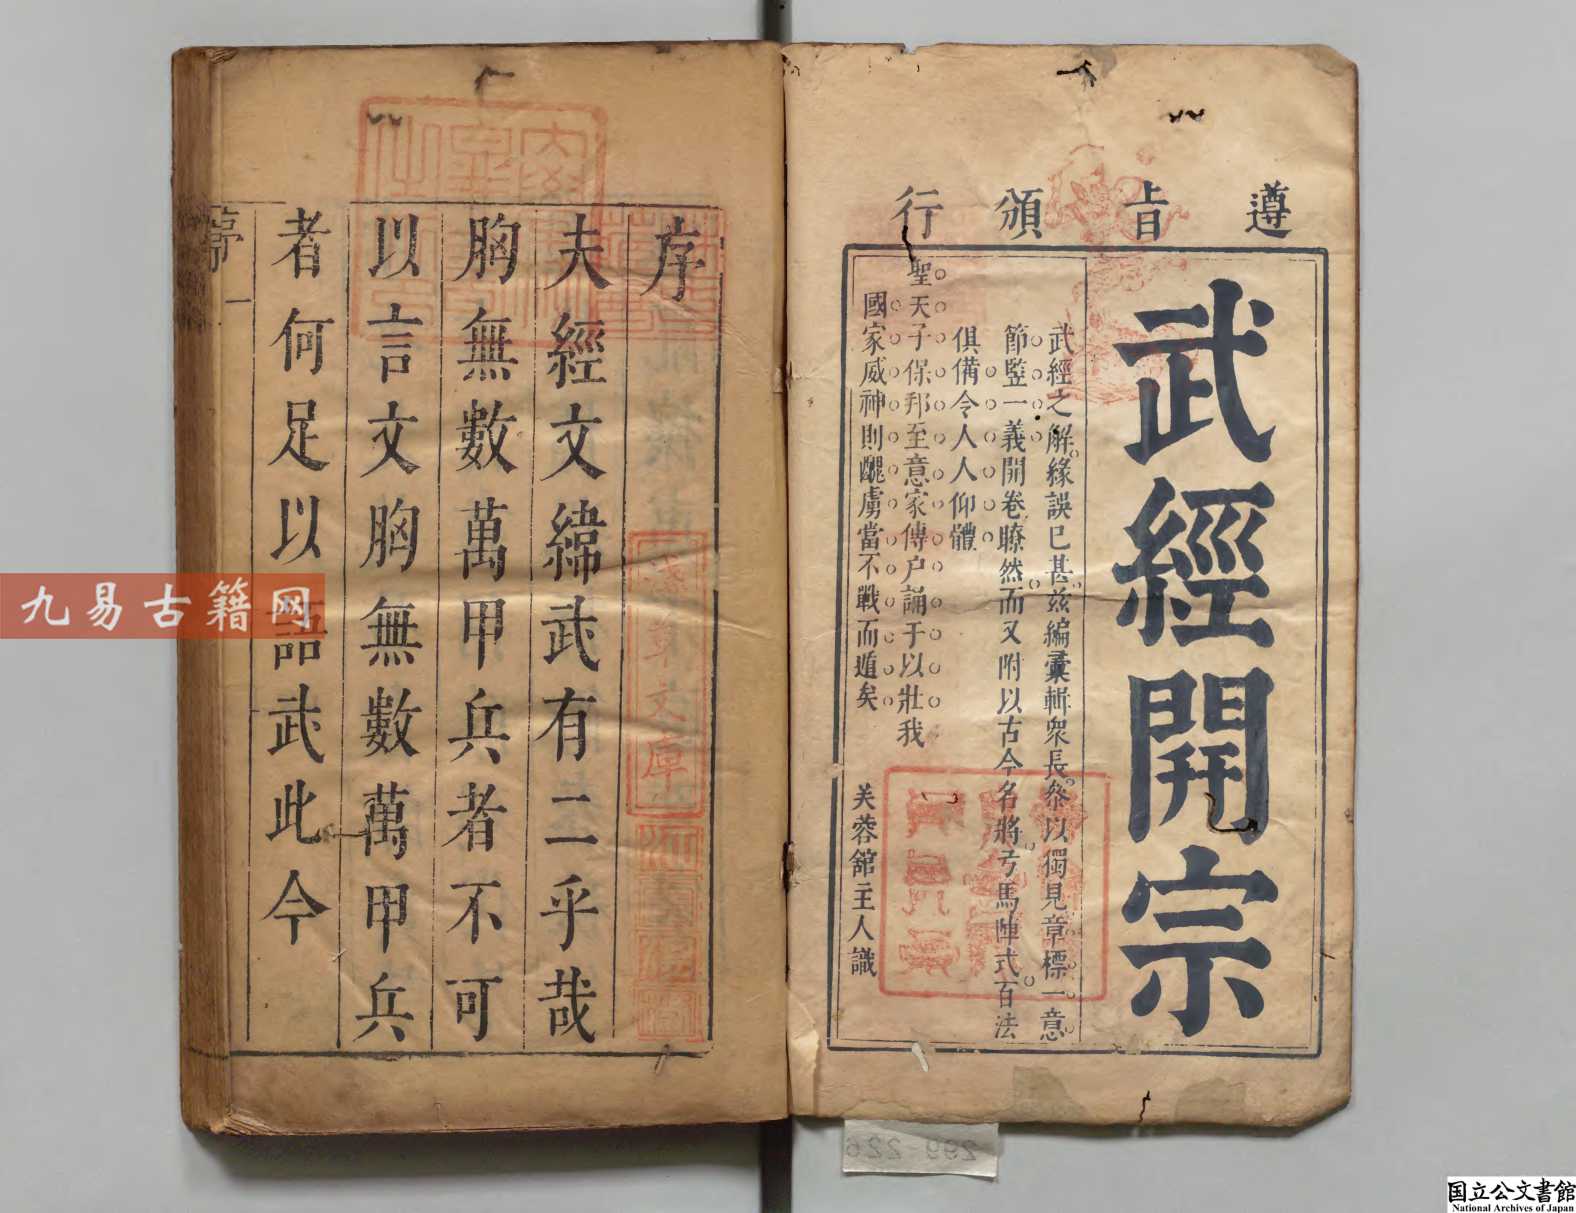 遵旨頒行
武經開宗
武經之解緣誤已甚茲編彙輯眾長叅以獨見章標一意
節竪一義開卷瞭然而又附以古今名將弓馬陣式百法
俱備令人人仰體
聖天子保邦至意家傳户誦于以壯我
國家威神則醜虜當不戰而遁矣
芙蓉館主人識
序
夫經文緯武有二乎哉
胸無數萬甲兵者不可
以言文胸無數萬甲兵
者何足以語武此今
序 一
淺草文庫
九易古籍网
299-226
国立公文書館
National Archives of Japan